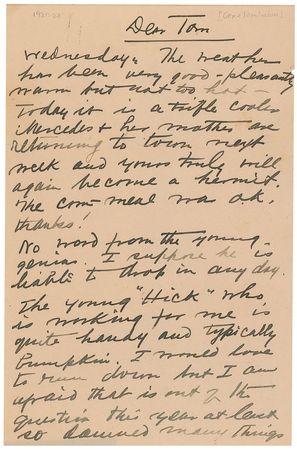 1921-23
Dear Tom
Wednesday. The weather
has been very good - pleasantly
warm but not too hot -
Today it is a trifle cooler
Mercedes & her mother are
returning to town next
week and yours truly will
again become a hermit.
The corn-meal was o.k.
thanks!
No word from the young
genius. I suppose he is
liable to drop in any day.
The young "Hick" who
is working for me is
quite handy and typically
bumpkin. I would love
to run down but I am
afraid that is out of the
question this year at least
so damned many things